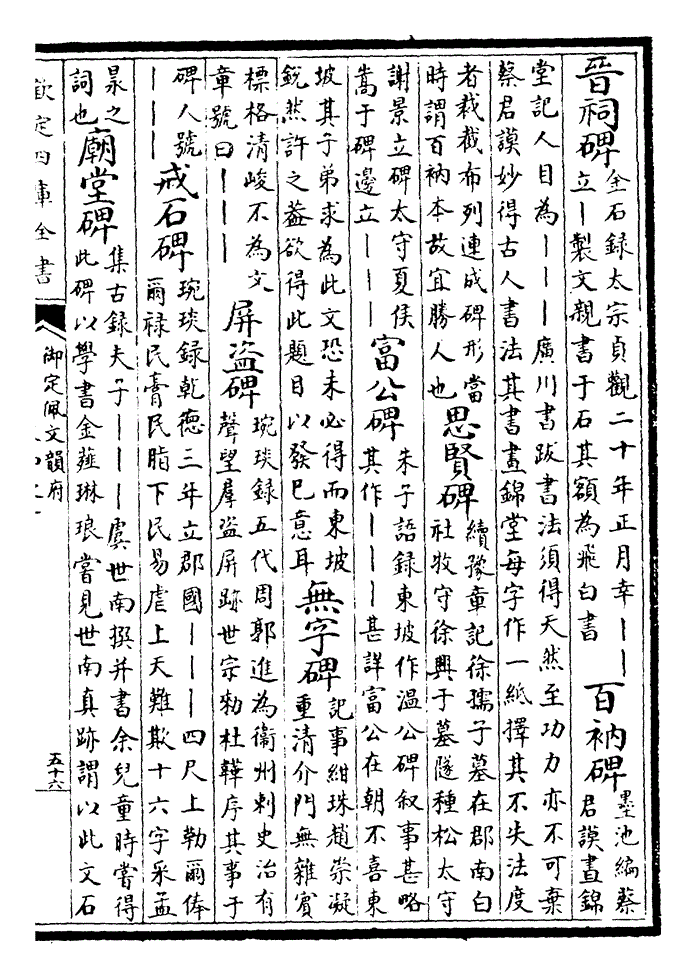 晉祠碑
金石録太宗貞觀二十年正月幸丨丨
立丨製文親書于石其額為飛白書
百衲碑
墨池編蔡
君謨晝錦
堂記人目為丨丨丨廣川書跋書法須得天然至功力亦不可棄
蔡君謨妙得古人書法其書晝錦堂每字作一紙擇其不失法度
者裁截布列連成碑形當
時謂百衲本故宜勝人也
思賢碑
續豫章記徐孺子墓在郡南白
社牧守徐興于墓隧種松太守
謝景立碑太守夏侯
嵩于碑邊立丨丨丨
富公碑
朱子語録東坡作溫公碑叙事甚略
其作丨丨丨甚詳富公在朝不喜東
坡其子弟求為此文恐未必得而東坡
鋭然許之葢欲得此題目以發巳意耳
無字碑
記事紺珠趙崇凝
重清介門無雜賓
標格清峻不為文
章號曰丨丨丨
屏盗碑
琬琰録五代周郭進為衞州刺史治有
聲望羣盗屏跡世宗勅杜韡序其事于
碑人號
丨丨丨
戒石碑
琬琰録乾德三年立郡國丨丨丨四尺上勒爾俸
爾禄民膏民脂下民易虐上天難欺十六字采孟
昶之
詞也
廟堂碑
集古録夫子丨丨丨虞世南撰并書余兒童時嘗得
此碑以學書金薤琳琅嘗見世南真跡謂以此文石
欽定四庫全書
御定佩文韻府
五十六